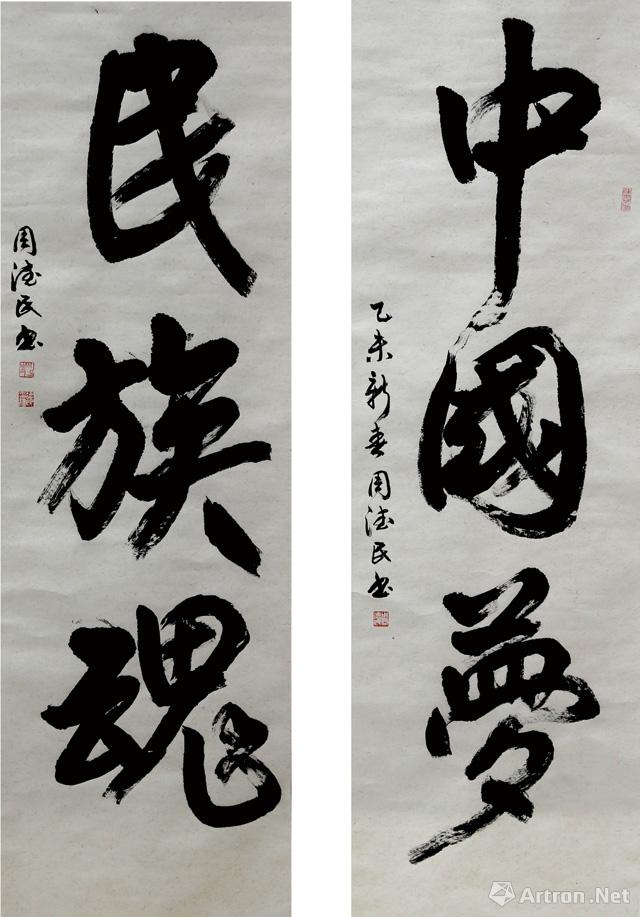 中國夢
乙未新春周德民書
民族魂
周德民書
Artron.Net